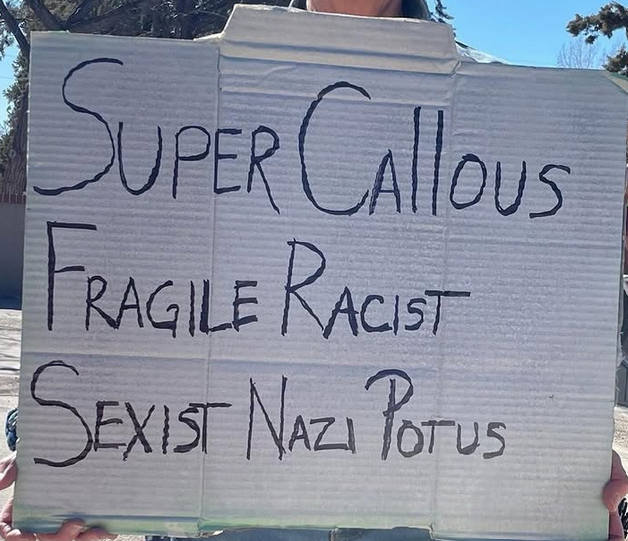 SUPER CAllOUS
FRAGILE RACIST
SEXIST NAZI POTUS